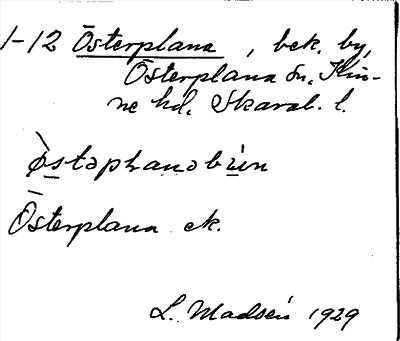 1-12 Österplana, bek. by,
Österplana sn. Kin-
ne hd. Skarab. l.
østəphanəbẏ̱n
Österplana ek.
L. Madsén 1929